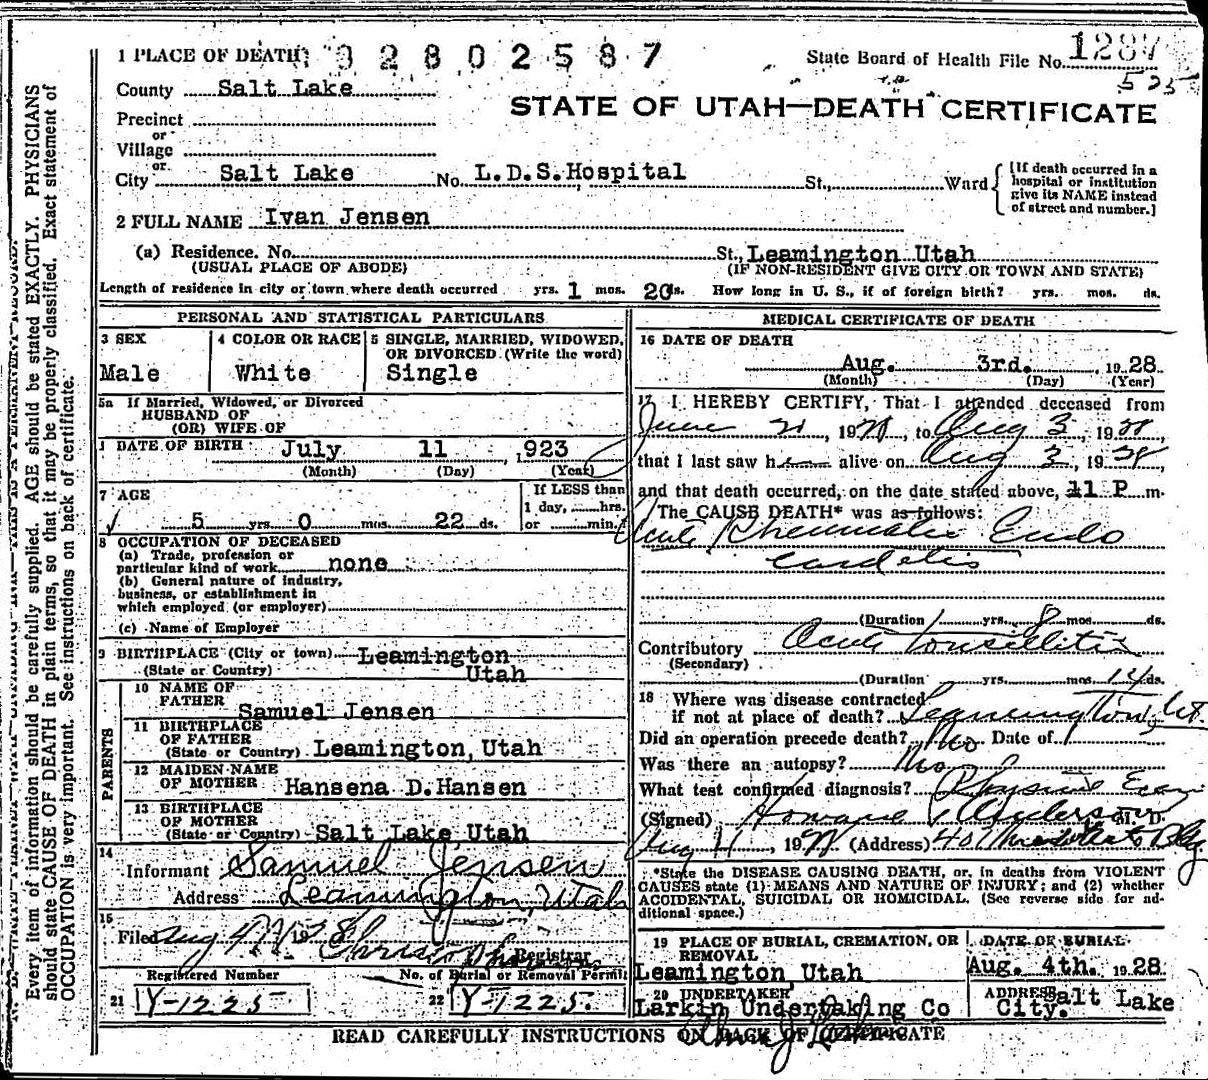 1 PLACE OF DEATH 92802587 State Board of Health File No. 1287
525
County Salt Lake
STATE OF UTAH—DEATH CERTIFICATE
Precinct
or
Village
or
City Salt Lake No. L.D.S. Hospital St., Ward
[If death occurred in a hospital or institution give its NAME instead of street and number.]
2 FULL NAME Ivan Jensen
(a) Residence. No. St., Leamington Utah
(USUAL PLACE OF ABODE) (IF NON-RESIDENT GIVE CITY OR TOWN AND STATE)
Length of residence in city or town where death occurred yrs. 1 mos. 20 ds. How long in U. S., if of foreign birth? yrs. mos. ds.
PERSONAL AND STATISTICAL PARTICULARS
3 SEX
Male
4 COLOR OR RACE
White
5 SINGLE, MARRIED, WIDOWED, OR DIVORCED (Write the word)
Single
5a If Married, Widowed, or Divorced
HUSBAND OF
(OR) WIFE OF
DATE OF BIRTH July 11 ,923
(Month) (Day) (Year)
7 AGE
5 yrs. 0 mos. 22 ds.
If LESS than
1 day, hrs.
or min.
8 OCCUPATION OF DECEASED
(a) Trade, profession or
particular kind of work none
(b) General nature of industry,
business, or establishment in
which employed (or employer)
(c) Name of Employer
9 BIRTHPLACE (City or town) Leamington
(State or Country) Utah
PARENTS
10 NAME OF
FATHER Samuel Jensen
11 BIRTHPLACE
OF FATHER
(State or Country) Leamington, Utah
12 MAIDEN NAME
OF MOTHER Hansena D. Hansen
13 BIRTHPLACE
OF MOTHER
(State or Country) Salt Lake Utah
14
Informant Samuel Jensen
Address Leamington, Utah
15
Filed Aug 4 1928
Registrar
Registered Number No. of Burial or Removal Permit
21 Y-1225 22 Y-1225
MEDICAL CERTIFICATE OF DEATH
16 DATE OF DEATH
Aug. 3rd. , 1928
(Month) (Day) (Year)
17 I HEREBY CERTIFY, That I attended deceased from
June 21, 1928, to Aug 3, 1928,
that I last saw h alive on Aug 3, 1928,
and that death occurred, on the date stated above, 11 P. m.
The CAUSE DEATH* was as follows:
Acute Rheumatic Endo
cardetis
(Duration) yrs. 8 mos. ds.
Contributory Acute Tonsillitis
(Secondary)
(Duration yrs. mos. 14 ds.
18 Where was disease contracted
if not at place of death? Leamington, Ut.
Did an operation precede death? No Date of
Was there an autopsy? No
What test confirmed diagnosis? Physical Exam
(Signed) Howard P Anderson M. D.
Aug 4, 1928 (Address)
*State the DISEASE CAUSING DEATH, or, in deaths from VIOLENT
CAUSES state (1) MEANS AND NATURE OF INJURY; and (2) whether
ACCIDENTAL, SUICIDAL OR HOMICIDAL. (See reverse side for ad-
ditional space.)
19 PLACE OF BURIAL, CREMATION, OR
REMOVAL
Leamington Utah
DATE OF BURIAL
Aug. 4th. 1928
20 UNDERTAKER
Larkin Undertaking Co
ADDRESS Salt Lake
City.
READ CAREFULLY INSTRUCTIONS ON BACK OF CERTIFICATE
Every item of information should be carefully supplied. AGE should be stated EXACTLY. PHYSICIANS
should state CAUSE OF DEATH in plain terms, so that it may be properly classified. Exact statement of
OCCUPATION is very important. See instructions on back of certificate.